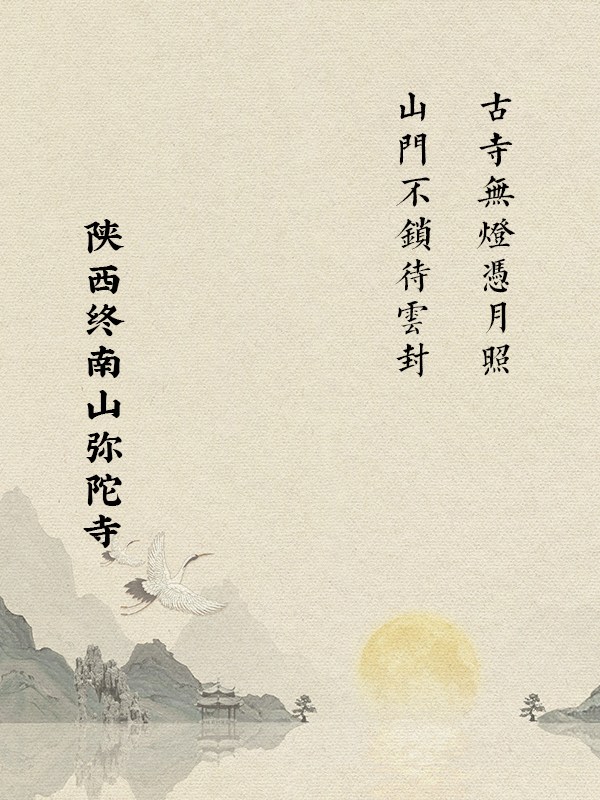 古寺無燈憑月照
山門不鎖待雲封
陕西终南山弥陀寺